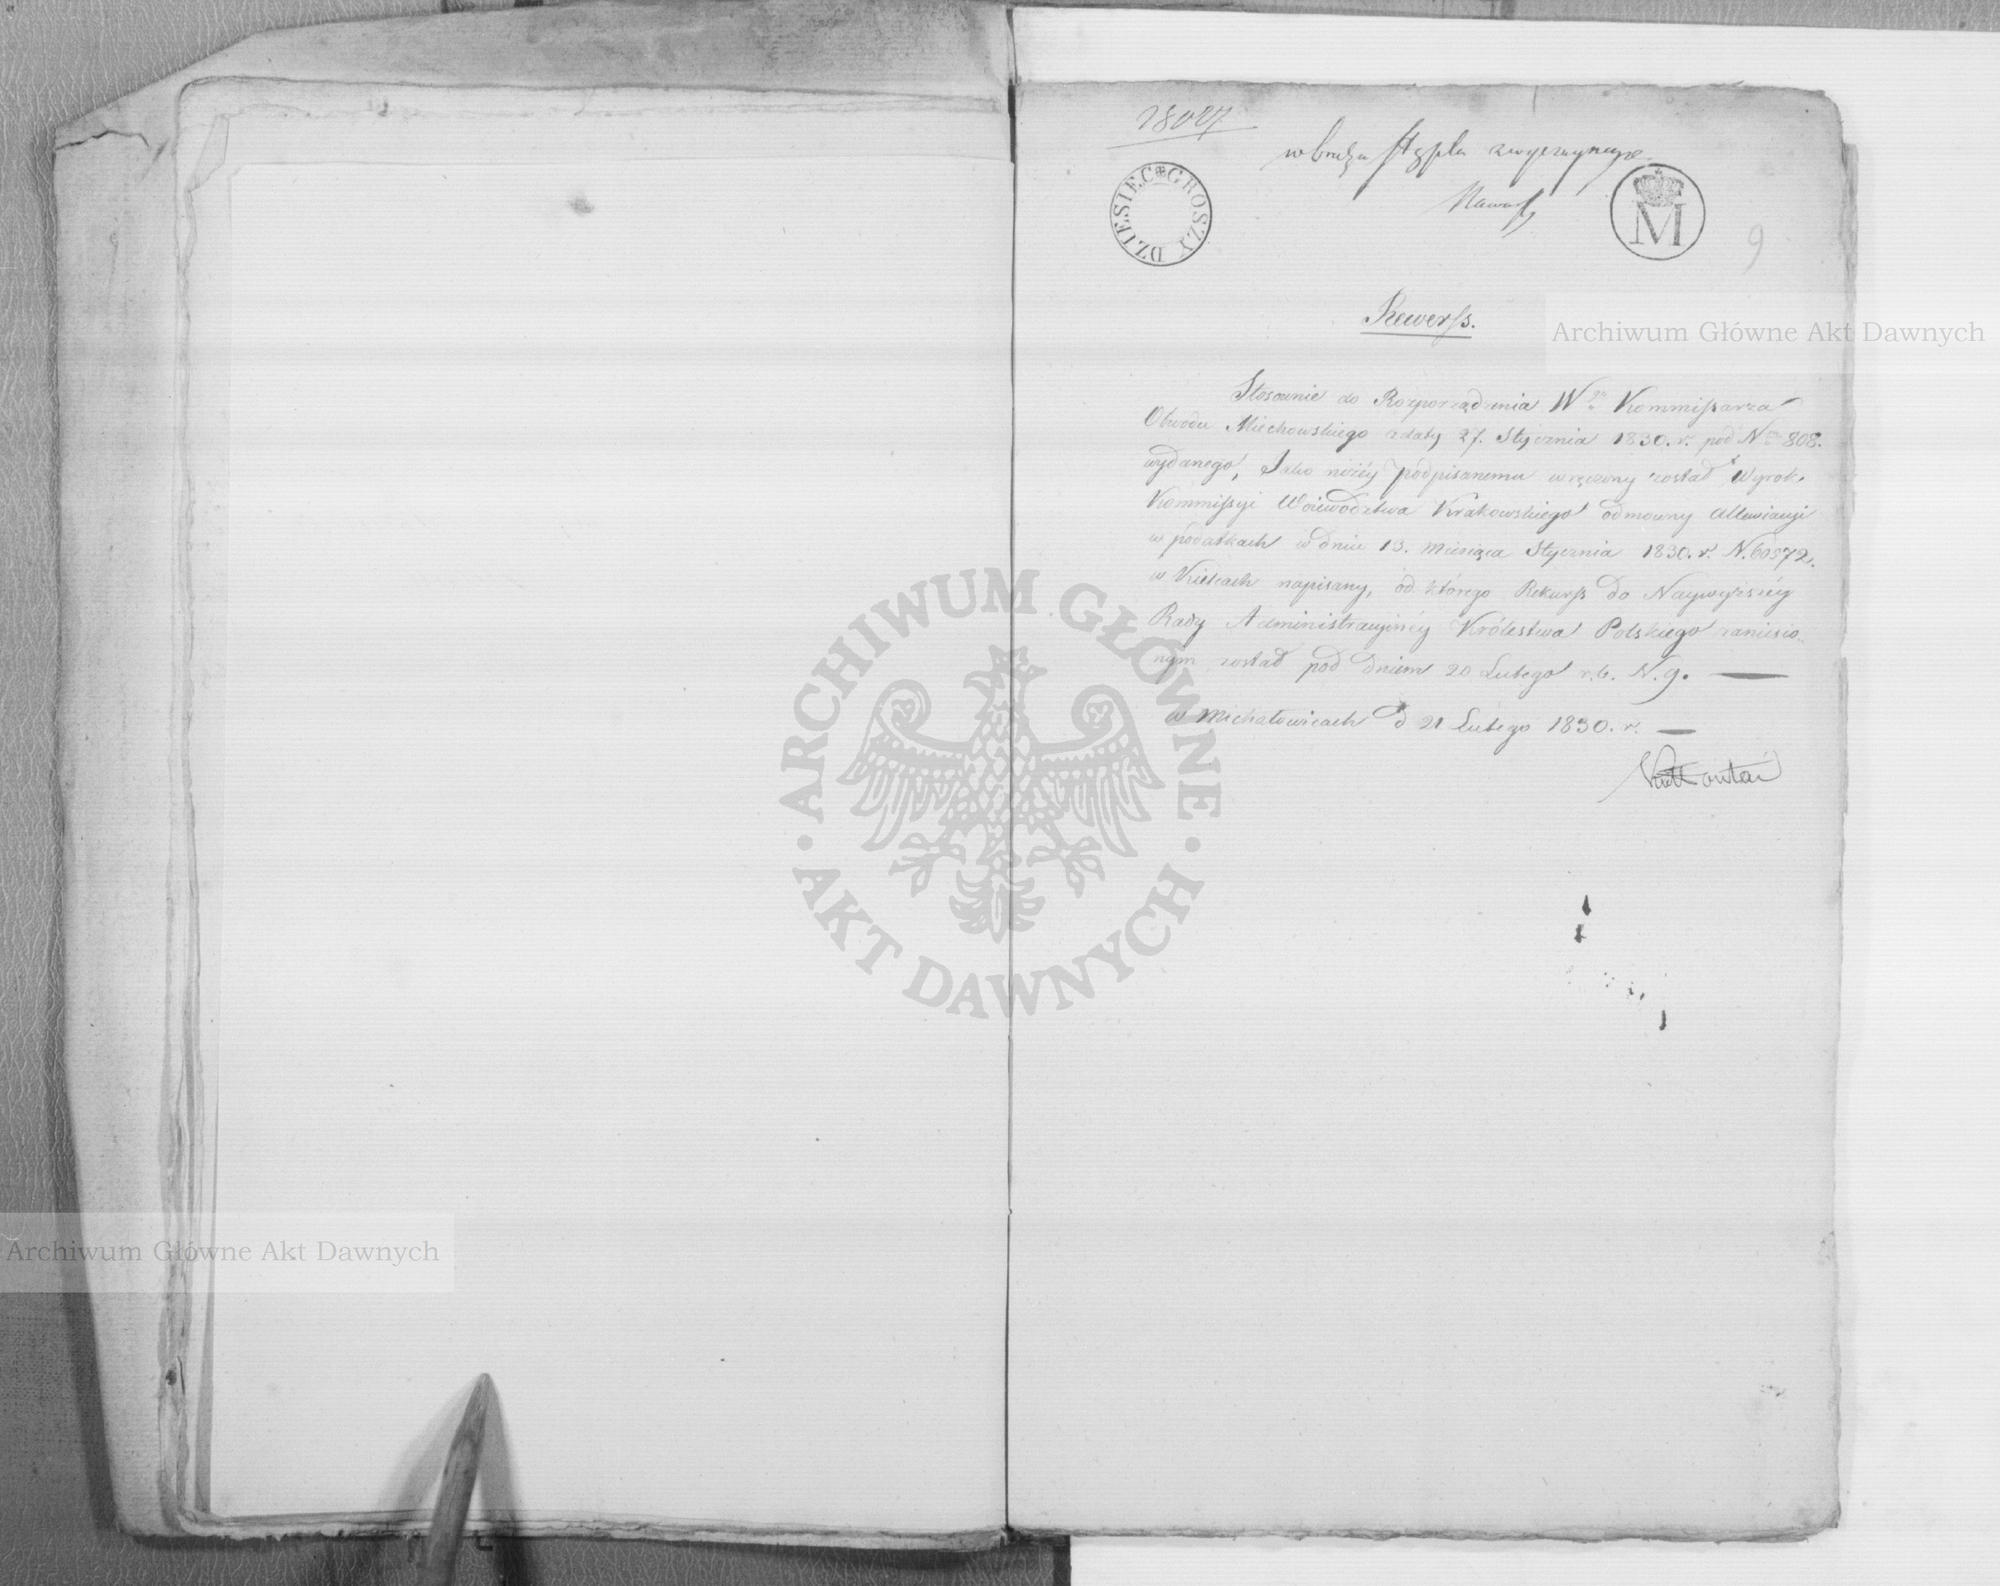 28027
w braku stępla zwyczaynego
DZIESIEC GROSZY
M
9
Rewerss.
Stosownie do Rozporządzenia W Kommissarza
Obwodu Miechowskiego z daty 27. Stycznia 1830. r. pod Nrem 808.
wydanego, Jako niżéy podpisanemu wręczony został Wyrok
Kommissyi Woiewodztwa Krakowskiego odmowny Allewiacyi
w podatkach w dniu 13. Miesiąca Stycznia 1830. r. N. 60572.
w Kielcach napisany, od którego Rekurss do Naywyższéy
Rady Administracyinéy Królestwa Polskiego zaniesio-
nym został pod dniem 20 Lutego r. b. N. 9. —
w Michałowicach d 21 Lutego 1830. r. —
Kołłontai
Archiwum Główne Akt Dawnych
ARCHIWUM GŁÓWNE · AKT DAWNYCH ·
Archiwum Główne Akt Dawnych